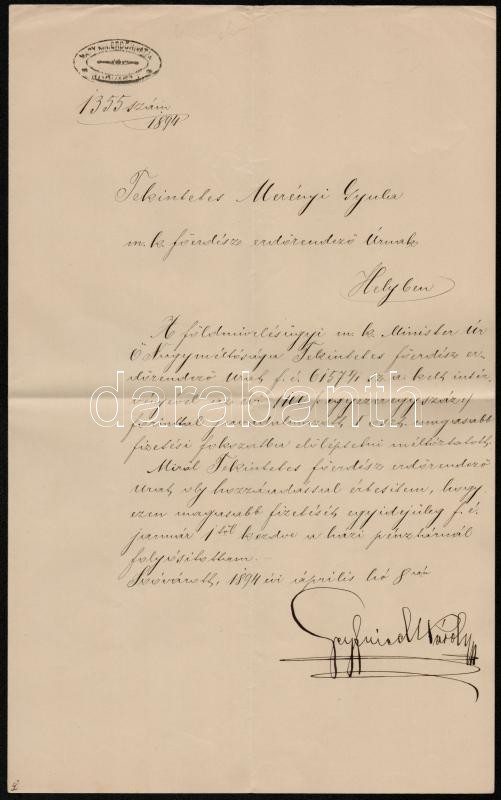 MAGY. KIR. ERDŐHIVATAL
1355 szám
1894
Tekintetes Merényi Gyula
m. k. főerdész erdőrendező Úrnak
Helyben
A földmivelésügyi m. k. Minister Úr
Ő Nagyméltósága Tekintetes főerdész er-
dőrendező Urat f. é. 61574 sz. a. kelt intéz-
vényével az évi 1100 (egyezeregyszáz)
forinttal javadalmazott magasabb
fizetési fokozatba előléptetni méltóztatott.
Miről Tekintetes főerdész erdőrendező
Urat, oly hozzáadással értesitem, hogy
ezen magasabb fizetését egyidejüleg f. é.
január 1től kezdve a házi pénztárnál
folyósitottam. –
Sóvárott, 1894 évi április hó 8án
Károly
darabanth